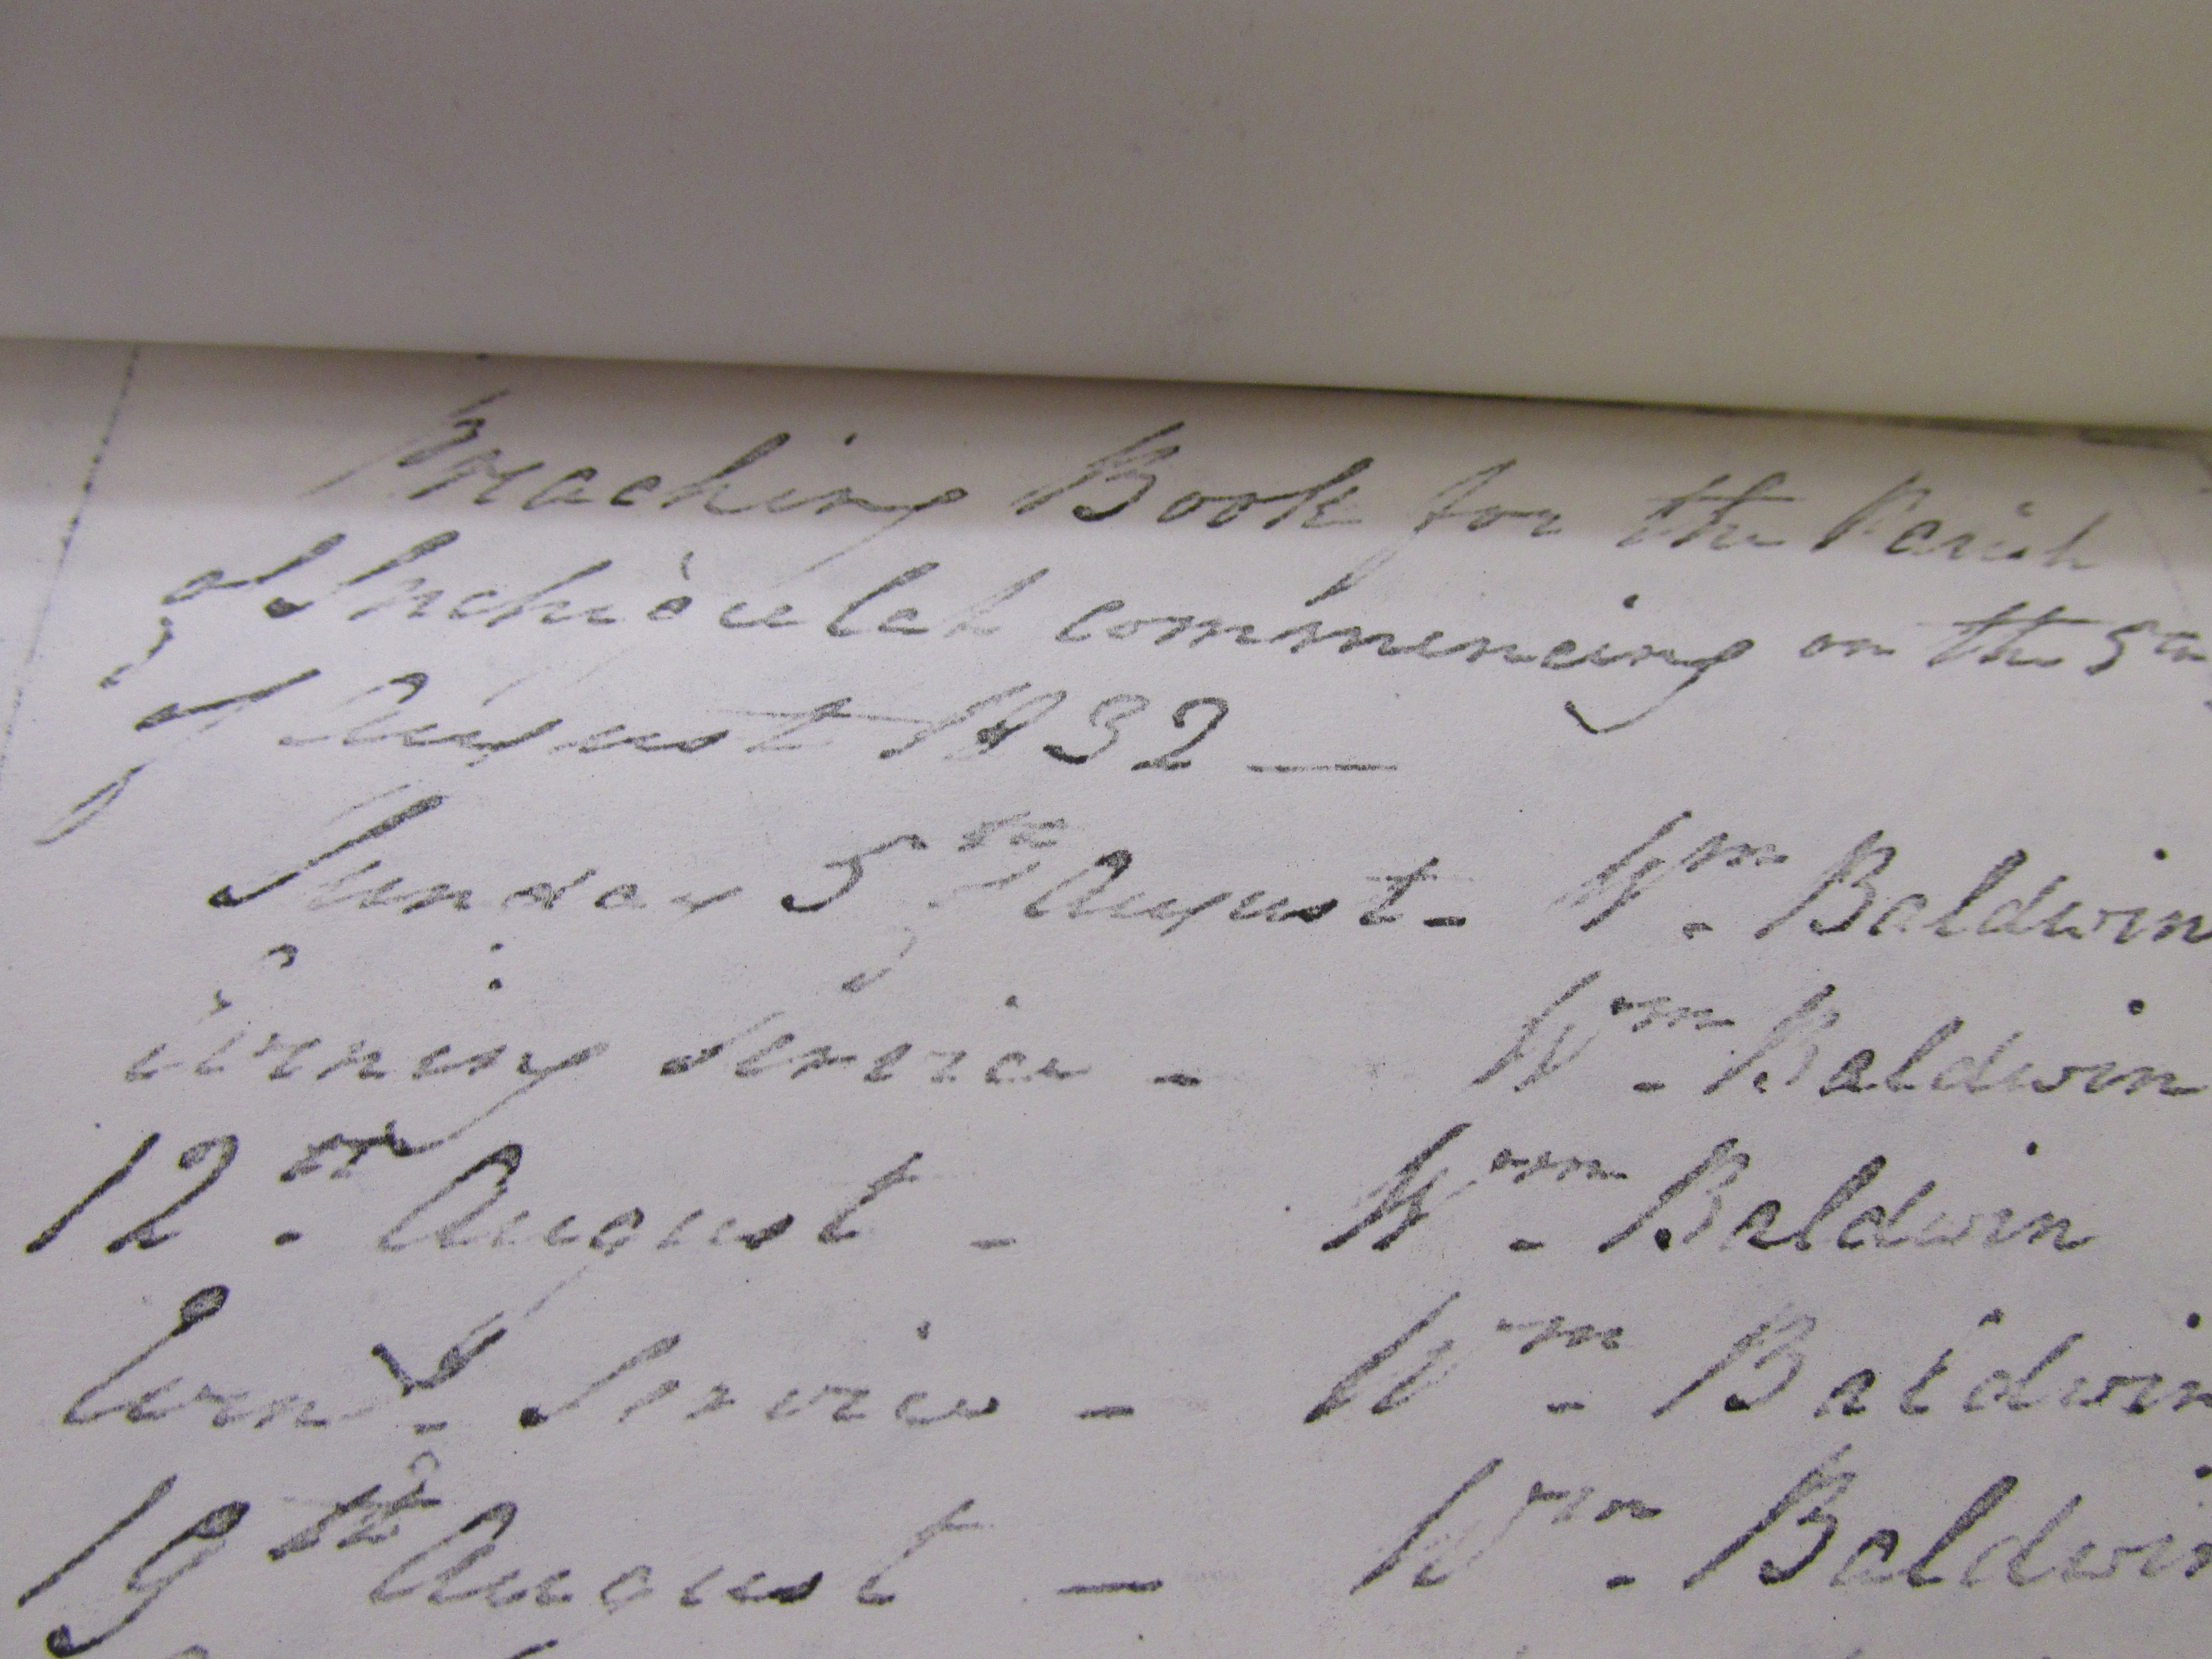 Preaching Book for the Parish
of Inchigeelah commencing on the 5th
of August 1832 —
Sunday 5th August - Wm. Baldwin
Evening Service - Wm. Baldwin
12th. August - Wm. Baldwin
Eveng. Service - Wm. Baldwin
19th August — Wm. Baldwin